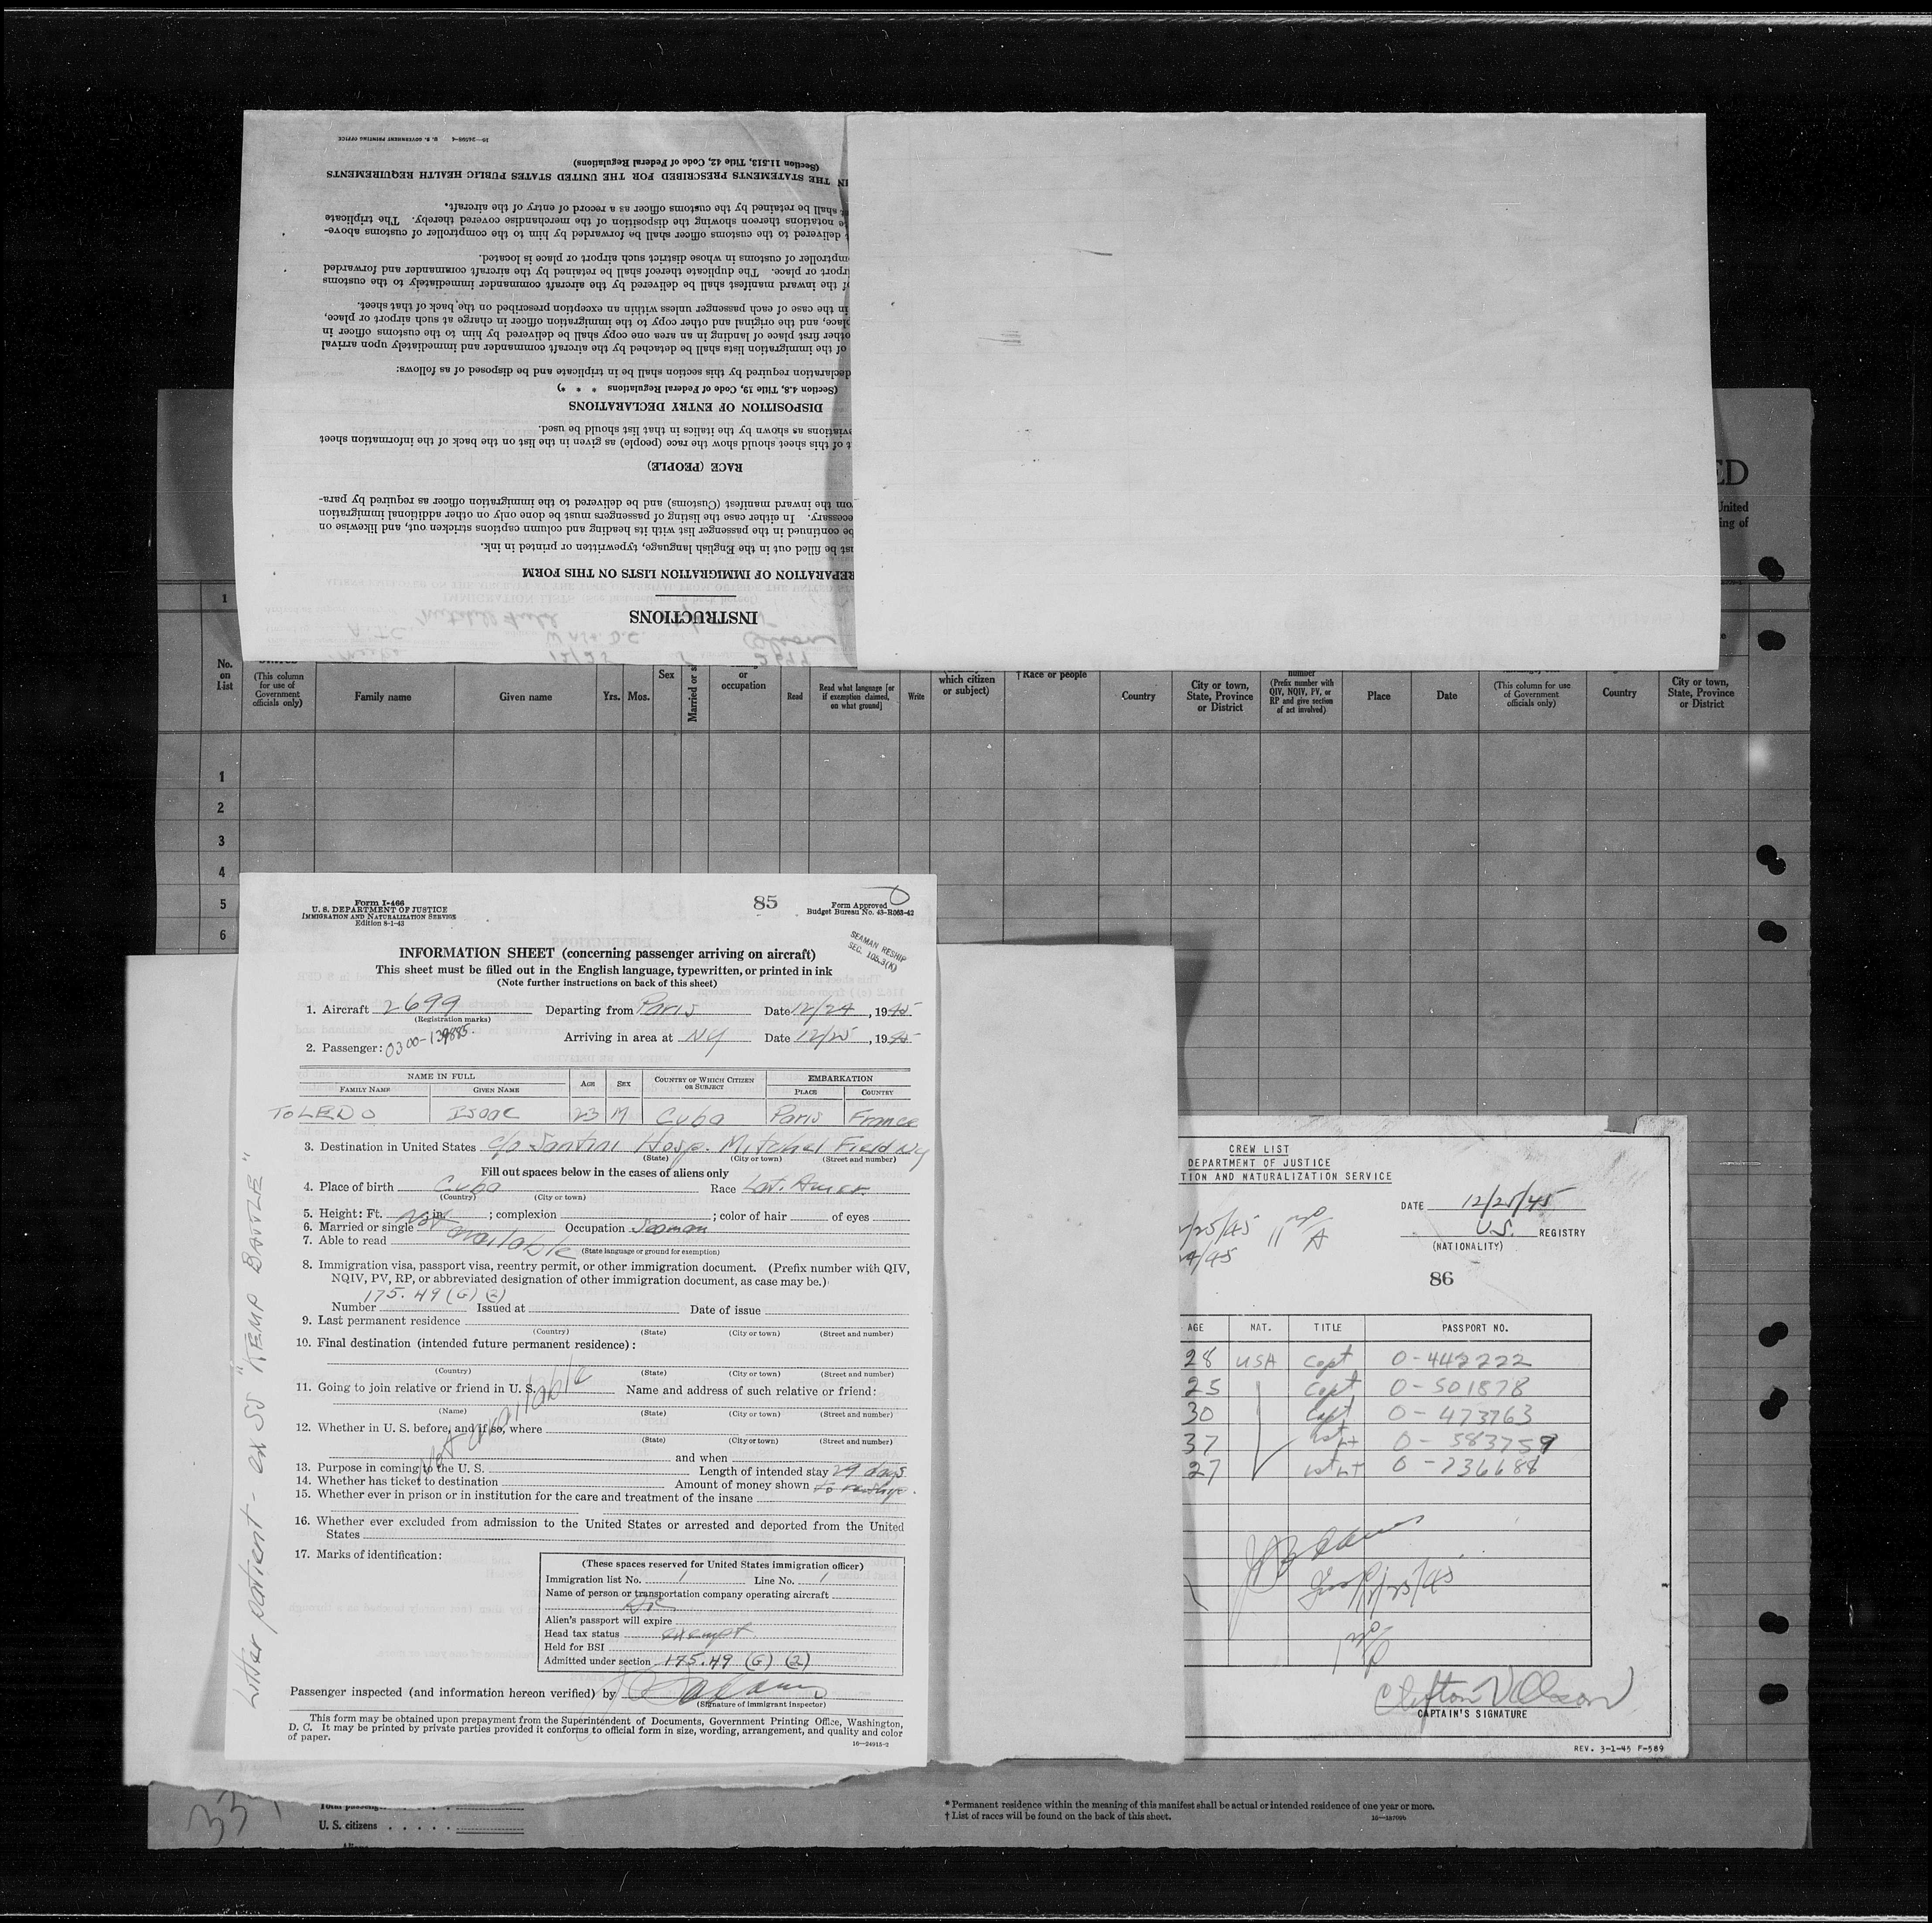 INSTRUCTIONS
REPARATION OF IMMIGRATION LISTS ON THIS FORM
st be filled out in the English language, typewritten or printed in ink.
be continued in the passenger list with its heading and column captions stricken out, and likewise on
ecessary. In either case the listing of passengers must be done only on other additional immigration
om the inward manifest (Customs) and be delivered to the immigration officer as required by para-
RACE (PEOPLE)
t of this sheet should show the race (people) as given in the list on the back of the information sheet
viations as shown by the italics in that list should be used.
DISPOSITION OF ENTRY DECLARATIONS
(Section 4.8, Title 19, Code of Federal Regulations * * *)
declaration required by this section shall be in triplicate and be disposed of as follows:
of the immigration lists shall be detached by the aircraft commander and immediately upon arrival
other first place of landing in an area one copy shall be delivered by him to the customs officer in
place, and the original and other copy to the immigration officer in charge at such airport or place,
in the case of each passenger unless within an exception prescribed on the back of that sheet.
of the inward manifest shall be delivered by the aircraft commander immediately to the customs
irport or place. The duplicate thereof shall be retained by the aircraft commander and forwarded
mptroller of customs in whose district such airport or place is located.
delivered to the customs officer shall be forwarded by him to the comptroller of customs above-
e notations thereon showing the disposition of the merchandise covered thereby. The triplicate
t shall be retained by the customs officer as a record of entry of the aircraft.
IN THE STATEMENTS PRESCRIBED FOR THE UNITED STATES PUBLIC HEALTH REQUIREMENTS
(Section 11.513, Title 42, Code of Federal Regulations)
16—24598-4 U. S. GOVERNMENT PRINTING OFFICE
ED
United
ing of
1
No. on List
(This column for use of Government officials only)
Family name
Given name
Yrs.
Mos.
Sex
Married or s
or occupation
Read
Read what language [or if exemption claimed, on what ground]
Write
which citizen or subject)
† Race or people
Country
City or town, State, Province or District
number (Prefix number with QIV, NQIV, PV, or RP and give section of act involved)
Place
Date
(This column for use of Government officials only)
Country
City or town, State, Province or District
1
2
3
4
5
6
Form I-466
U. S. DEPARTMENT OF JUSTICE
IMMIGRATION AND NATURALIZATION SERVICE
Edition 8-1-43
85
Form Approved
Budget Bureau No. 43-R063-42
SEAMAN RESHIP
SEC. 105.3(K)
INFORMATION SHEET (concerning passenger arriving on aircraft)
This sheet must be filled out in the English language, typewritten, or printed in ink
(Note further instructions on back of this sheet)
1. Aircraft 2699 Departing from Paris Date 12/24, 1945
(Registration marks)
Arriving in area at NY Date 12/25, 1945
2. Passenger: 0300-139885.
NAME IN FULL
FAMILY NAME GIVEN NAME AGE SEX COUNTRY OF WHICH CITIZEN OR SUBJECT EMBARKATION PLACE COUNTRY
TOLEDO Isaac 23 M Cuba Paris France
3. Destination in United States c/o Santini Hosp. Mitchel Field NY
(State) (City or town) (Street and number)
Fill out spaces below in the cases of aliens only
4. Place of birth Cuba Race Lat. Amer.
(Country) (City or town)
5. Height: Ft. in. ; complexion ; color of hair of eyes
Not available
6. Married or single Occupation Seaman
7. Able to read
(State language or ground for exemption)
8. Immigration visa, passport visa, reentry permit, or other immigration document. (Prefix number with QIV,
NQIV, PV, RP, or abbreviated designation of other immigration document, as case may be.)
175.49 (G) (2)
Number Issued at Date of issue
9. Last permanent residence
(Country) (State) (City or town) (Street and number)
10. Final destination (intended future permanent residence):
(Country) (State) (City or town) (Street and number)
11. Going to join relative or friend in U. S. Name and address of such relative or friend:
(Name) (State) (City or town) (Street and number)
Not available
12. Whether in U. S. before, and if so, where
(State) (City or town) (Street and number)
and when
13. Purpose in coming to the U. S. Length of intended stay 29 days
14. Whether has ticket to destination Amount of money shown to reship.
15. Whether ever in prison or in institution for the care and treatment of the insane
16. Whether ever excluded from admission to the United States or arrested and deported from the United
States
17. Marks of identification:
(These spaces reserved for United States immigration officer)
Immigration list No. 1 Line No. 1
Name of person or transportation company operating aircraft
Alien's passport will expire
Head tax status exempt.
Held for BSI
Admitted under section 175.49 (G) (2)
Passenger inspected (and information hereon verified) by
(Signature of immigrant inspector)
This form may be obtained upon prepayment from the Superintendent of Documents, Government Printing Office, Washington,
D. C. It may be printed by private parties provided it conforms to official form in size, wording, arrangement, and quality and color
of paper.
16—24915-2
Litter patient - ex SS "KEMP BATTLE"
CREW LIST
DEPARTMENT OF JUSTICE
TION AND NATURALIZATION SERVICE
DATE 12/25/45
/25/45
/45
U.S. REGISTRY
(NATIONALITY)
86
AGE NAT. TITLE PASSPORT NO.
28 USA Capt O-442222
25 Capt O-501878
30 Capt O-473763
37 1st Lt O-583759
27 1st Lt O-736688
12/25/45
Clifton V Olson
CAPTAIN'S SIGNATURE
REV. 3-1-45 F-589
33
Total passeng
U. S. citizens
* Permanent residence within the meaning of this manifest shall be actual or intended residence of one year or more.
† List of races will be found on the back of this sheet.